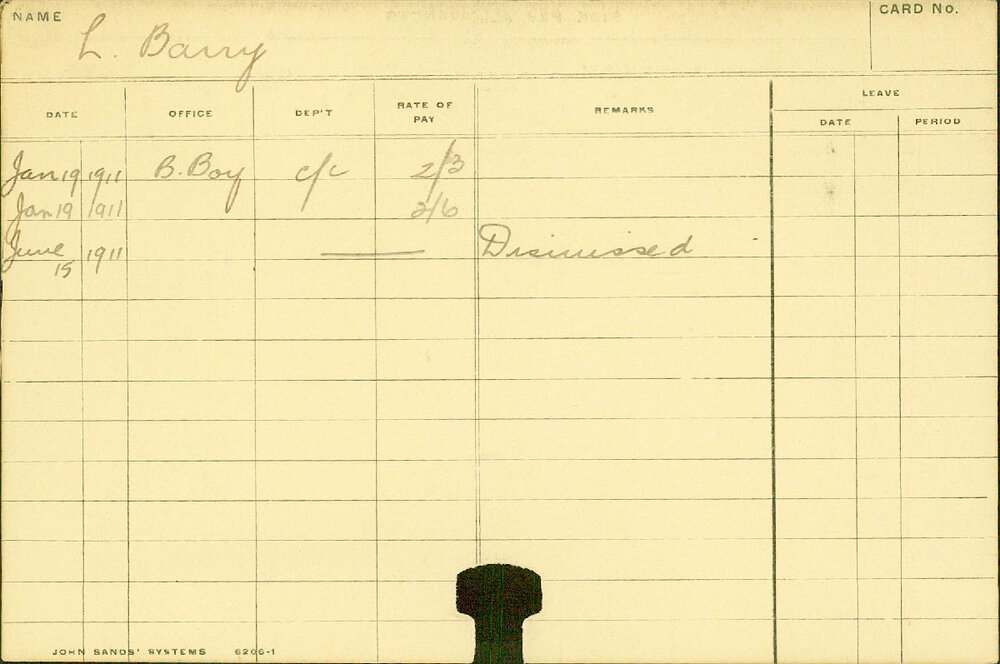 NAME
L. Barry
CARD No.
DATE OFFICE DEP'T RATE OF PAY REMARKS LEAVE
DATE PERIOD
Jan 19 1911 B. Boy c/c 2/3
Jan 19 1911 2/6
June 15 1911 Dismissed
JOHN SANDS' SYSTEMS 6206-1